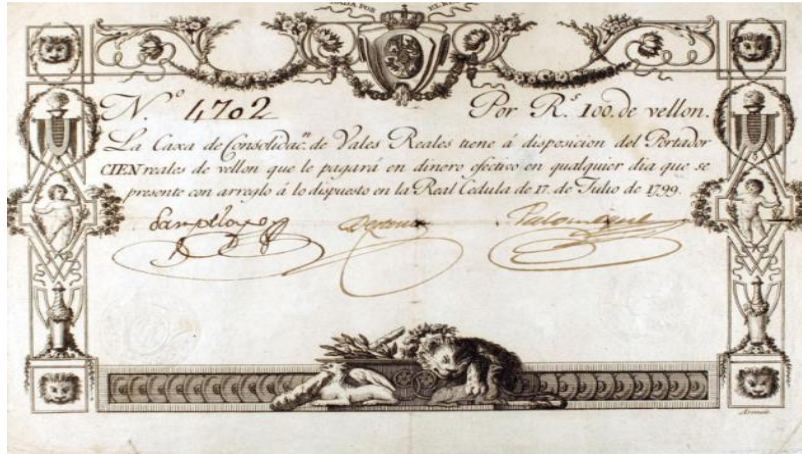 ADA POR EL R
N.º 4702 Por R.ˢ 100. de vellon.
La Caxa de Consolidac.ⁿ de Vales Reales tiene á disposicion del Portador
CIEN reales de vellon que le pagará en dinero efectivo en qualquier dia que se
presente con arreglo á lo dispuesto en la Real Cedula de 17. de Julio de 1799.